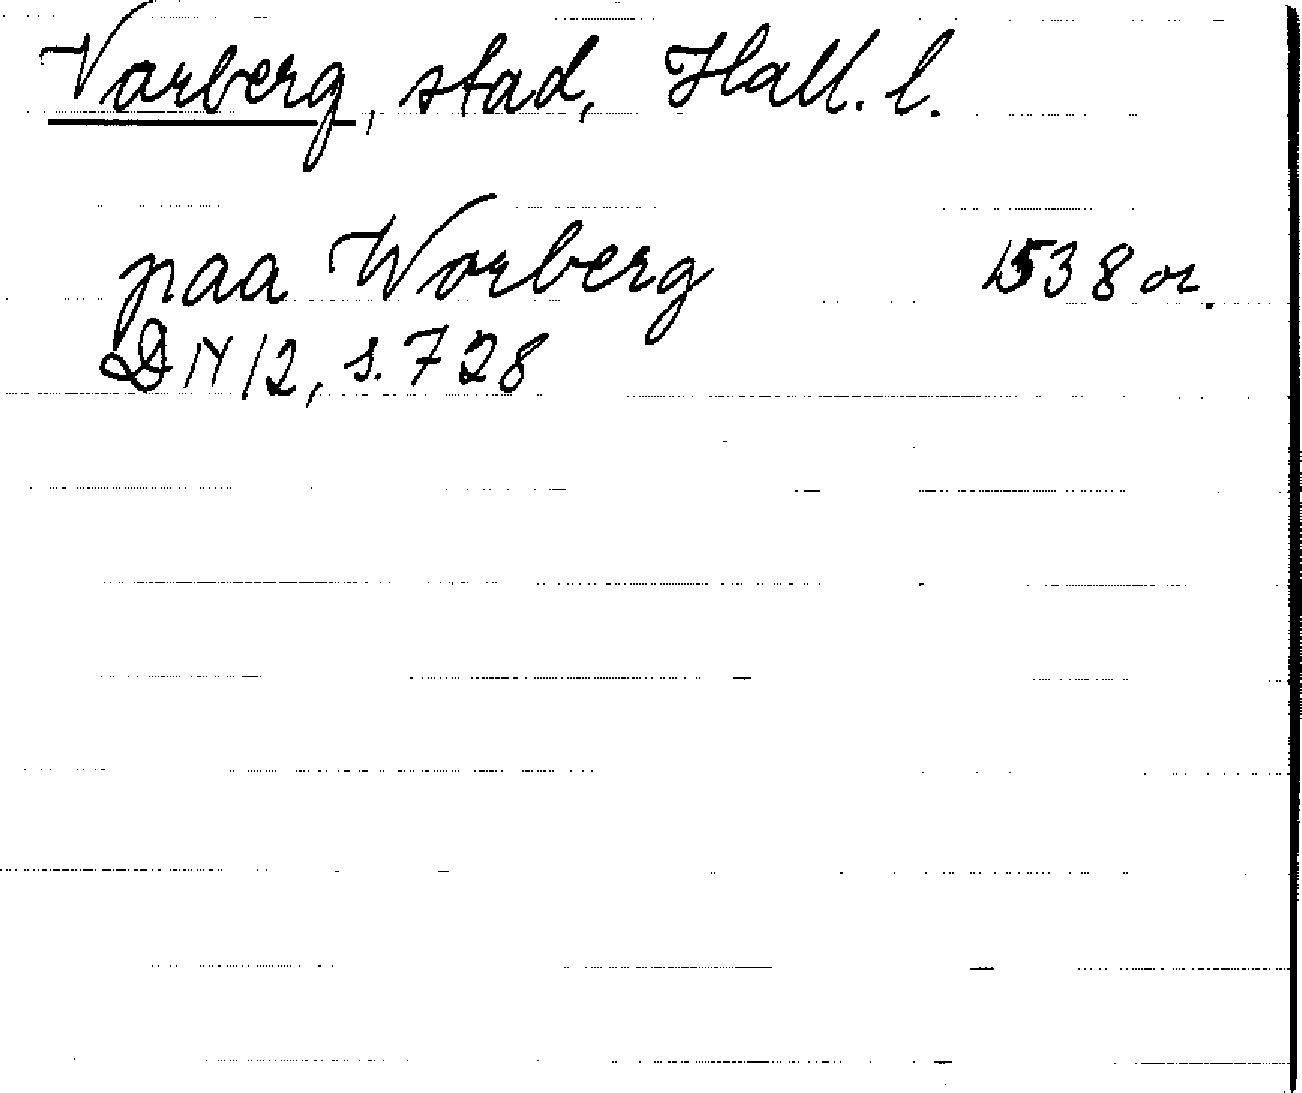 Varberg, stad, Hall. l.
paa Warberg 1538 or.
DN 12, s. 728